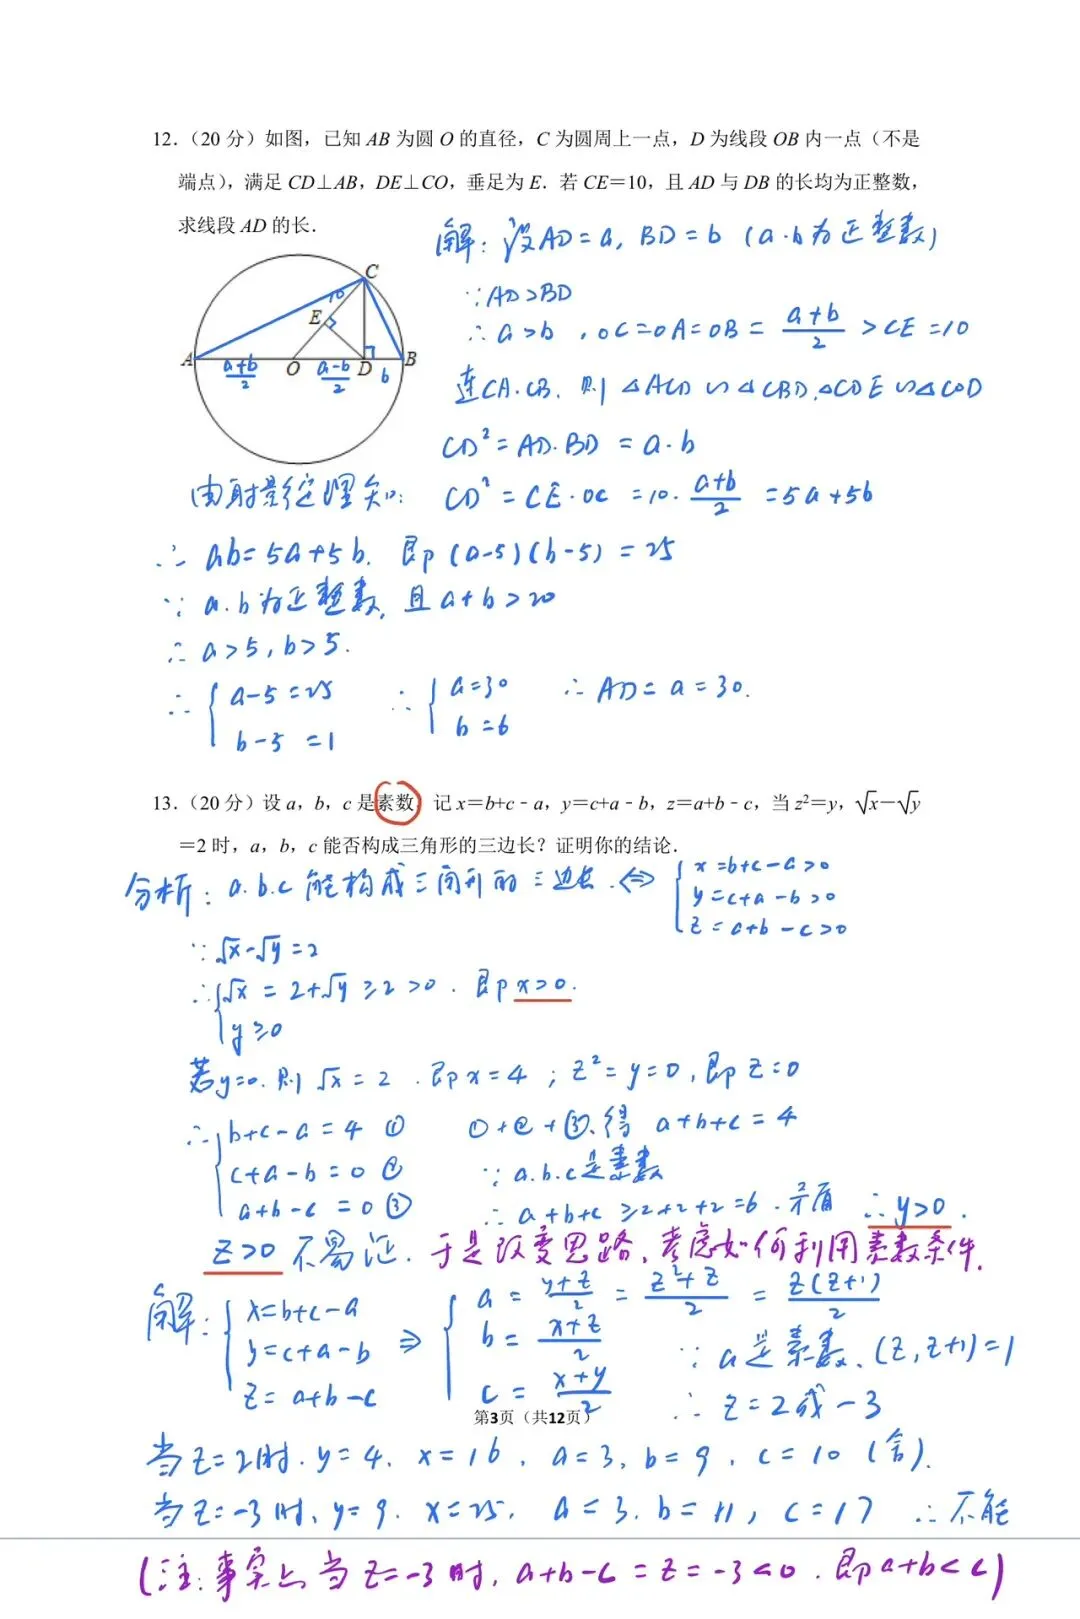 12．（20 分）如图，已知 AB 为圆 O 的直径，C 为圆周上一点，D 为线段 OB 内一点（不是
端点），满足 CD⊥AB，DE⊥CO，垂足为 E．若 CE＝10，且 AD 与 DB 的长均为正整数，
求线段 AD 的长．
解：设AD=a, BD=b (a.b为正整数)
∵AD>BD
∴a>b , OC=OA=OB= (a+b)/2 >CE=10
连CA.CB. 则△ACD∽△CBD,△CDE∽△COD
CD²=AD.BD =a.b
C
10
E
A
(a+b)/2
O
(a-b)/2
D
b
B
由射影定理知: CD²=CE·OC =10·(a+b)/2 =5a+5b
∴ ab=5a+5b. 即(a-5)(b-5)=25
∵ a.b为正整数,且a+b>20
∴ a>5, b>5.
∴ { a-5=25 ∴ { a=30 ∴AD=a=30.
b-5=1 b=6
13．（20 分）设 a，b，c 是素数，记 x＝b+c﹣a，y＝c+a﹣b，z＝a+b﹣c，当 z²＝y，√x－√y
＝2 时，a，b，c 能否构成三角形的三边长？证明你的结论．
分析: a.b.c能构成三角形的三边长.⇔ { x=b+c-a>0
y=c+a-b>0
z=a+b-c>0
∵√x-√y=2
∴{ √x=2+√y≥2>0. 即x>0.
y≥0
若y=0.则√x=2.即x=4; z²=y=0,即z=0
∴{ b+c-a=4 ① ①+②+③.得 a+b+c=4
c+a-b=0 ② ∵a.b.c是素数
a+b-c=0 ③ ∴a+b+c≥2+2+2=6.矛盾 ∴y>0.
z>0不易证.于是改变思路,考虑如何利用素数条件.
解: { x=b+c-a ⇒ { a=(y+z)/2=(z²+z)/2=z(z+1)/2
y=c+a-b b=(x+z)/2 ∵a是素数.(z,z+1)=1
z=a+b-c c=(x+y)/2 ∴z=2或-3
第3页（共12页）
当z=2时.y=4. x=16 . a=3, b=9 . c=10 (舍).
当z=-3时,y=9. x=25. a=3. b=11, c=17 ∴不能
(注:事实上当z=-3时, a+b-c=z=-3<0. 即a+b<c)